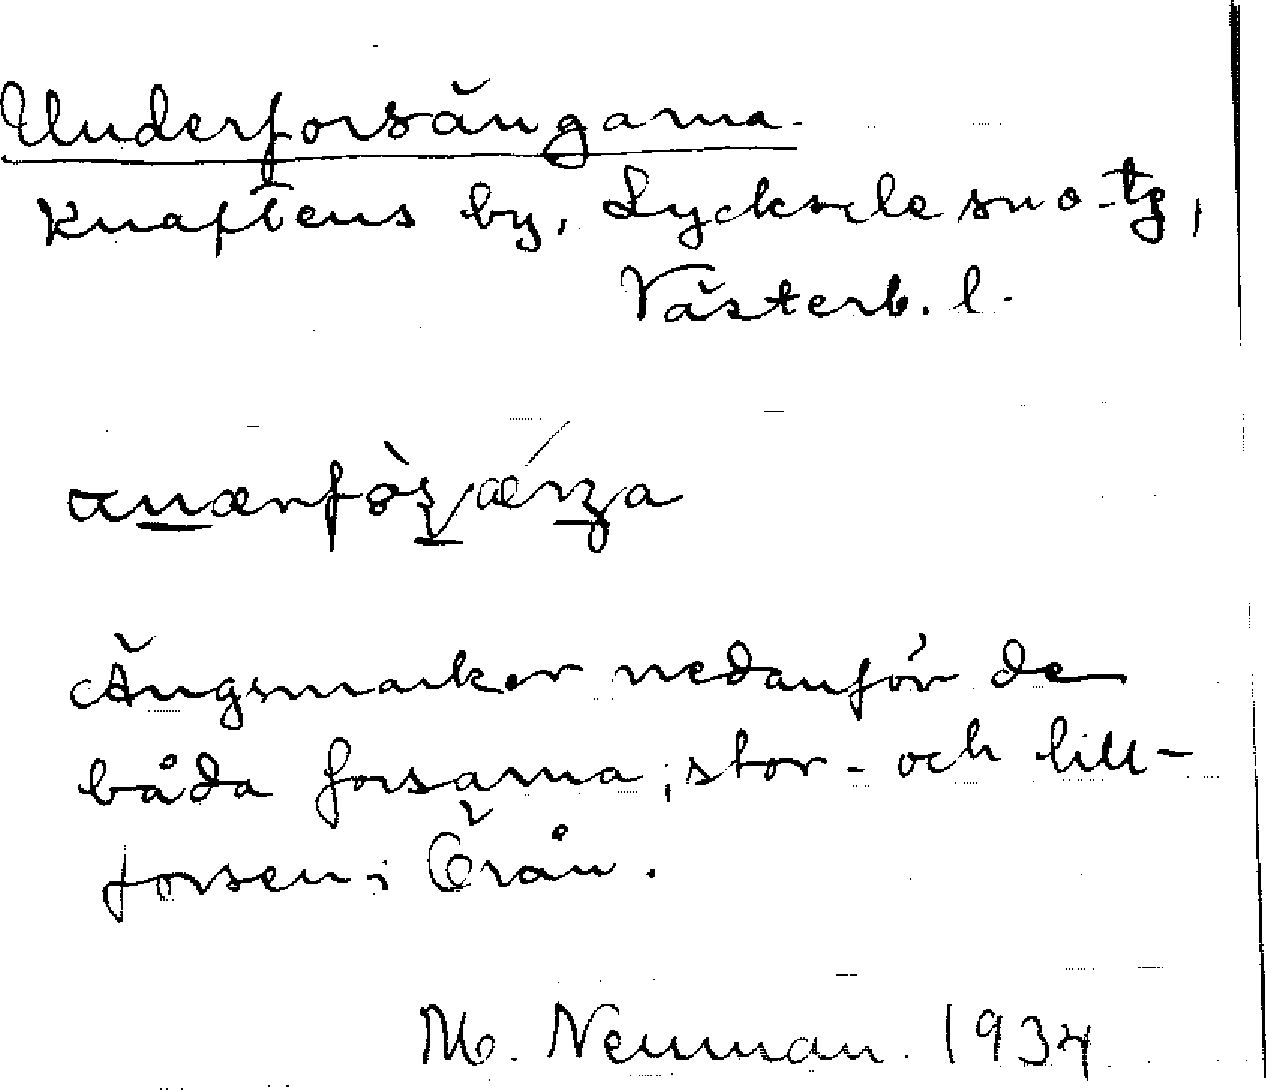 Underforsängarna.
Knaftens by, Lycksele sn o. tg,
Västerb. l.
Ängsmarker nedanför de
båda forsarna, stor- och lill-
forsen i Örån.
M. Neuman. 1934